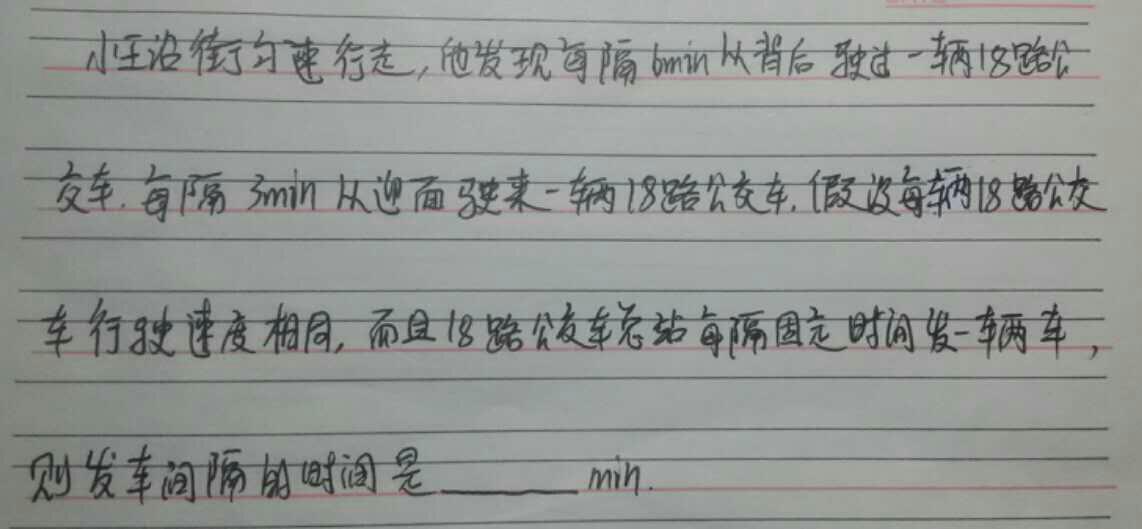 小王沿街匀速行走,他发现每隔6min从背后驶过一辆18路公
交车.每隔3min从迎面驶来一辆18路公交车.假设每辆18路公交
车行驶速度相同,而且18路公交车总站每隔固定时间发一辆车,
则发车间隔的时间是______min.